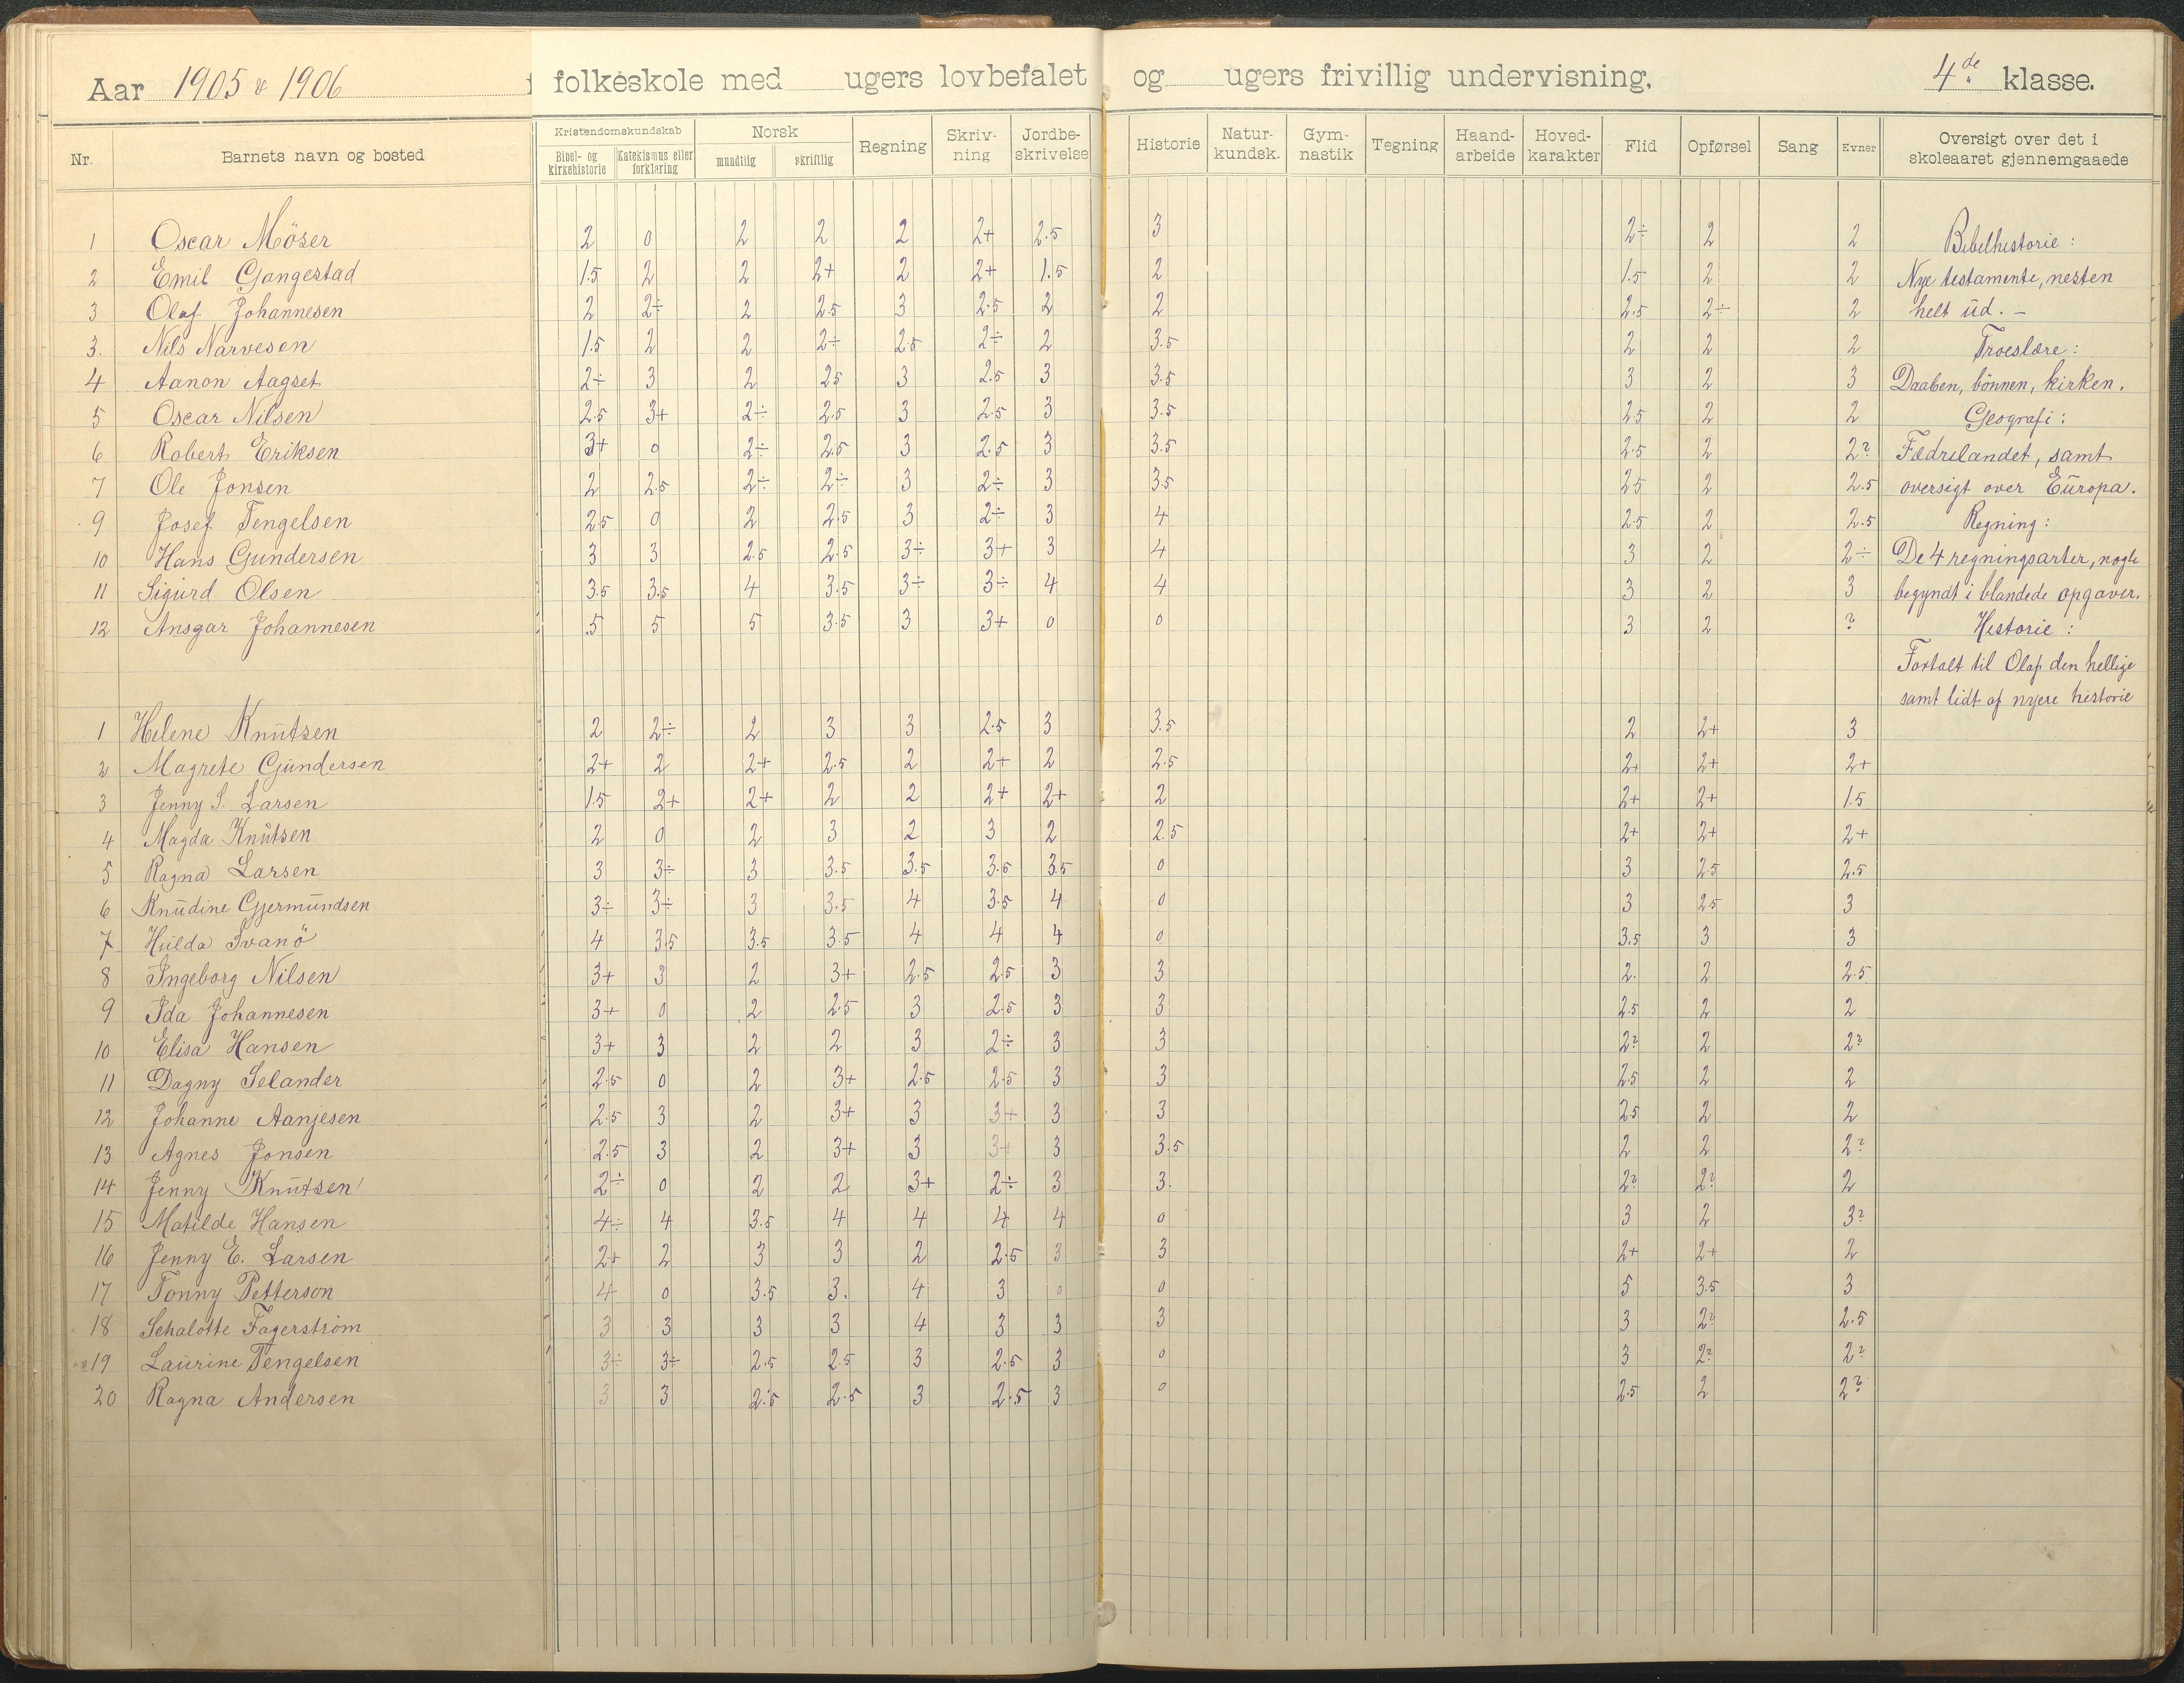 Aar 1905 & 1906 folkeskole med ugers lovbefalet og ugers frivillig undervisning. 4de klasse.
Nr. Barnets navn og bosted Kristendomskundskab Bibel- og kirkehistorie Katekismus eller forklaring Norsk mundtlig skriftlig Regning Skriv-ning Jordbe-skrivelse Historie Natur-kundsk. Gym-nastik Tegning Haand-arbeide Hoved-karakter Flid Opførsel Sang Evner Oversigt over det i skoleaaret gjennemgaaede
1 Oscar Möser 2 0 2 2 2 2+ 2.5 3 2÷ 2 2 Bibelhistorie:
2 Emil Gangestad 1.5 2 2 2+ 2 2+ 1.5 2 1.5 2 2 Nye testamente, nesten
3 Olaf Johannesen 2 2÷ 2 2.5 3 2.5 2 2 2.5 2÷ 2 helt ud. –
3. Nils Narvesen 1.5 2 2 2÷ 2.5 2÷ 2 3.5 2 2 2 Troeslære:
4 Aanon Aagset 2÷ 3 2 25 3 2.5 3 3.5 3 2 3 Daaben, bönnen, kirken.
5 Oscar Nilsen 2.5 3+ 2÷ 2.5 3 2.5 3 3.5 2.5 2 2 Geografi:
6 Robert Eriksen 3+ 0 2÷ 2.5 3 2.5 3 3.5 2.5 2 2? Fædrelandet, samt
7 Ole Jonsen 2 2.5 2÷ 2÷ 3 2÷ 3 3.5 2.5 2 2.5 oversigt over Europa.
9 Josef Tengelsen 2.5 0 2 2.5 3 2÷ 3 4 2.5 2 2.5 Regning:
10 Hans Gundersen 3 3 2.5 2.5 3÷ 3+ 3 4 3 2 2÷ De 4 regningsarter, nogle
11 Sigurd Olsen 3.5 3.5 4 3.5 3÷ 3÷ 4 4 3 2 3 begyndt i blandede opgaver.
12 Ansgar Johannesen 5 5 5 3.5 3 3+ 0 0 3 2 ? Historie:
Fortalt til Olaf den hellige
samt lidt af nyere historie
1 Helene Knutsen 2 2÷ 2 3 3 2.5 3 3.5 2 2+ 3
2 Magrete Gundersen 2+ 2 2+ 2.5 2 2+ 2 2.5 2+ 2+ 2+
3 Jenny S. Larsen 1.5 2+ 2+ 2 2 2+ 2+ 2 2+ 2+ 1.5
4 Magda Knutsen 2 0 2 3 2 3 2 2.5 2+ 2+ 2+
5 Ragna Larsen 3 3÷ 3 3.5 3.5 3.5 3.5 0 3 2.5 2.5
6 Knudine Gjermundsen 3÷ 3÷ 3 3.5 4 3.5 4 0 3 2.5 3
7 Hulda Svanö 4 3.5 3.5 3.5 4 4 4 0 3.5 3 3
8 Ingeborg Nilsen 3+ 3 2 3+ 2.5 2.5 3 3 2. 2 2.5
9 Ida Johannesen 3+ 0 2 2.5 3 2.5 3 3 2.5 2 2
10 Elisa Hansen 3+ 3 2 2 3 2÷ 3 3 2? 2 2?
11 Dagny Selander 2.5 0 2 3+ 2.5 2.5 3 3 2.5 2 2
12 Johanne Aanjesen 2.5 3 2 3+ 3 3+ 3 3 2.5 2 2
13 Agnes Jonsen 2.5 3 2 3+ 3 3+ 3 3.5 2 2 2?
14 Jenny Knutsen 2÷ 0 2 2 3+ 2÷ 3 3. 2? 2? 2
15 Matilde Hansen 4÷ 4 3.5 4 4 4 4 0 3 2 3?
16 Jenny E. Larsen 2+ 2 3 3 2 2.5 3 3 2+ 2+ 2
17 Tonny Petterson 4 0 3.5 3. 4 3 0 0 5 3.5 3
18 Schalotte Fagerstrøm 3 3 3 3 4 3 3 3 3 2? 2.5
19 Laurine Tengelsen 3÷ 3÷ 2.5 2.5 3 2.5 3 0 3 2? 2?
20 Ragna Andersen 3 3 2.5 2.5 3 2.5 3 0 2.5 2 2?